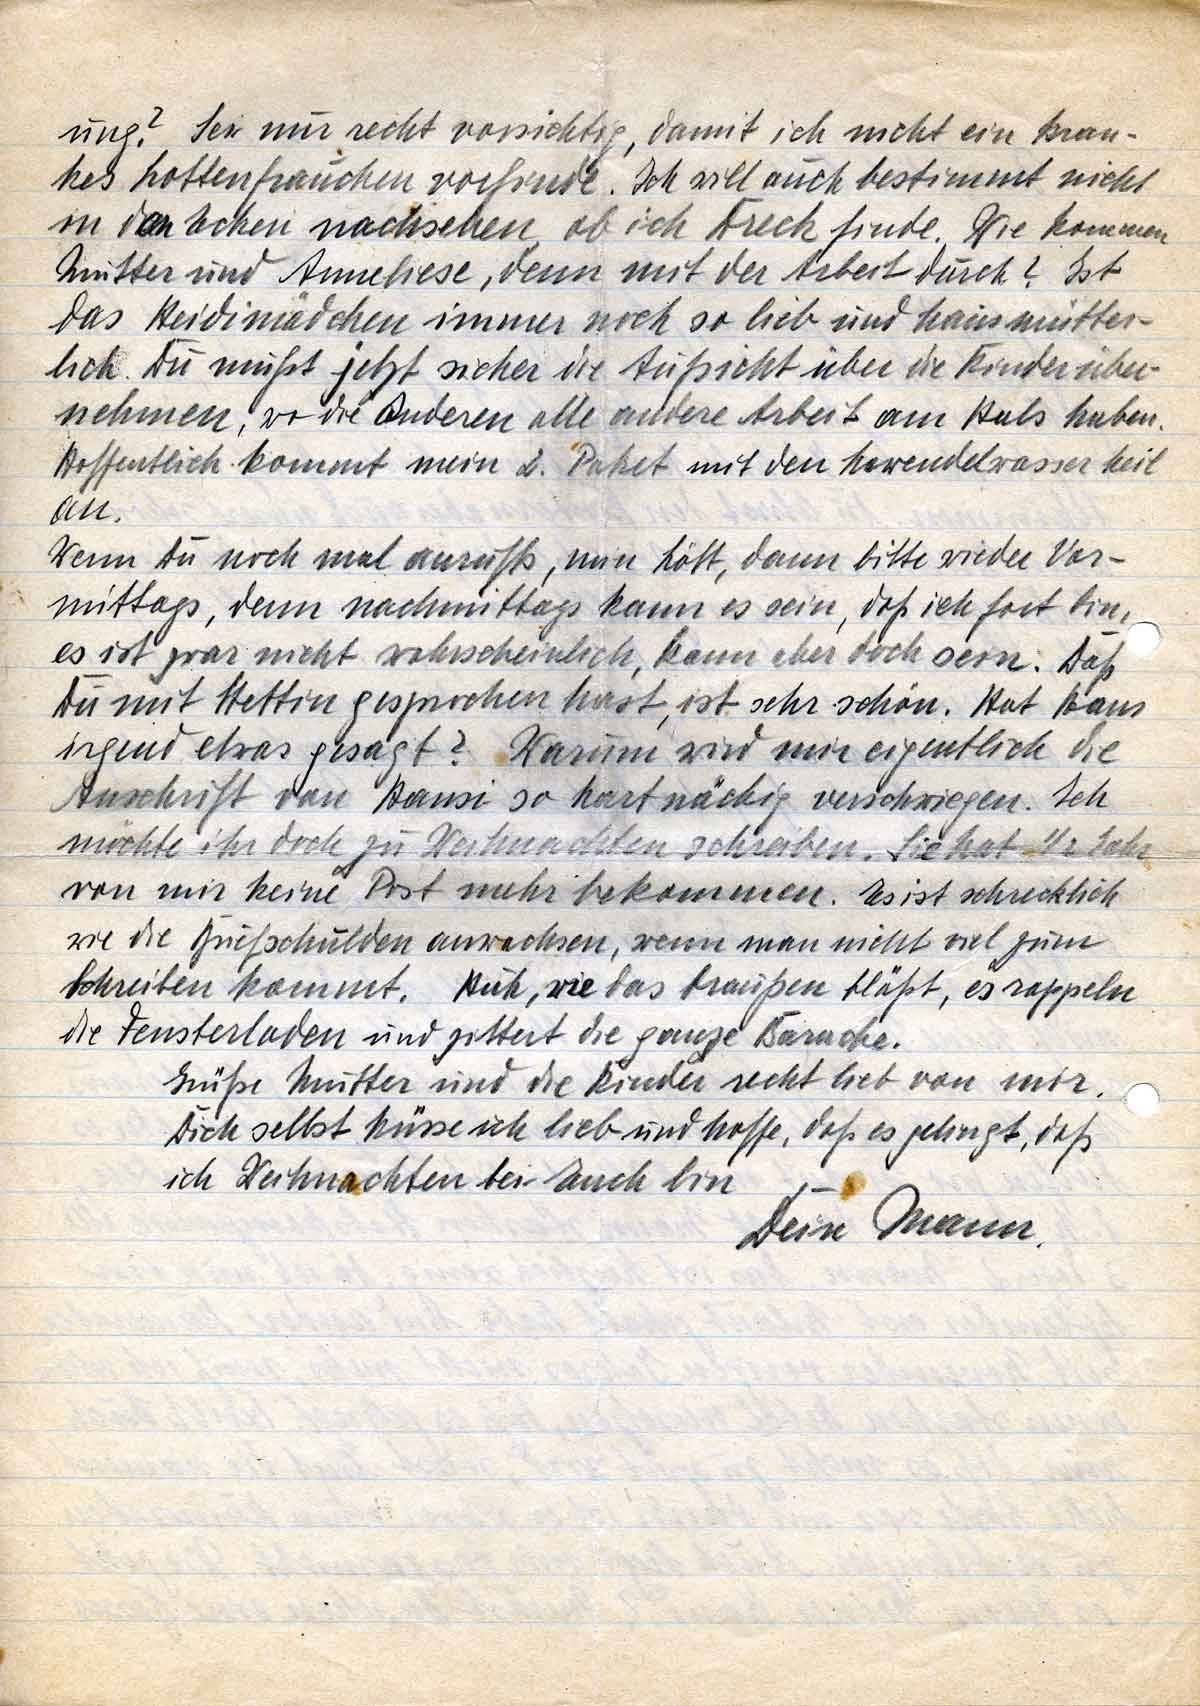 ung? Sei nur recht vorsichtig, damit ich nicht ein kran-
kes Lottenfrauchen vorfinde. Ich will auch bestimmt nicht
in den Ecken nachsehen ob ich Dreck finde. Wie kommen
Mutter und Anneliese, denn mit der Arbeit durch? Ist
das Heidimädchen immer noch so lieb und hausmütter-
lich. Du mußt jetzt sicher die Aufsicht über die Kinder über-
nehmen, wo die Anderen alle andere Arbeit am Hals haben.
Hoffentlich kommt mein 2. Paket mit den Lavendelwasser heil
an.
Wenn Du noch mal anrufst, mein Lött, dann bitte wieder Vor-
mittags, denn nachmittags kann es sein, daß ich fort bin,
es ist zwar nicht wahrscheinlich, kann aber doch sein. Daß
Du mit Stettin gesprochen hast, ist sehr schön. Hat Hans
irgend etwas gesagt? Warum wird mir eigentlich die
Anschrift von Hansi so hartnäckig verschwiegen. Ich
möchte ihr doch zu Weihnachten schreiben. Sie hat 1/2 Jahr
von mir keine Post mehr bekommen. Es ist schrecklich
wie die Briefschulden anwachsen, wenn man nicht viel zum
Schreiben kommt. Huh, wie das draußen bläßt, es rappeln
die Fensterladen und zittert die ganze Baracke.
Grüße Mutter und die Kinder recht lieb von mir.
Dich selbst küsse ich lieb und hoffe, daß es gelingt, daß
ich Weihnachten bei Euch bin
Dein Mann.